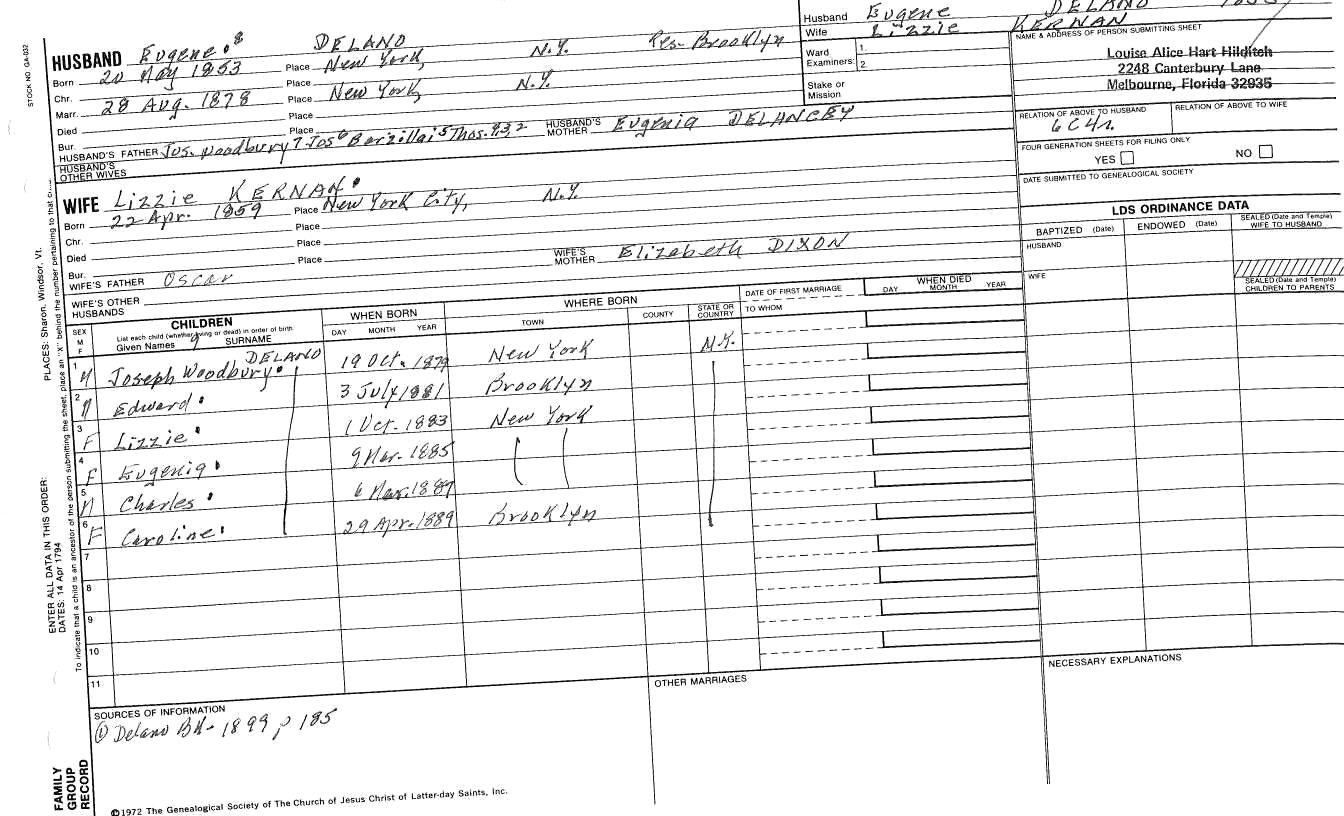 Husband Eugene DELANO
Wife Lizzie KERNAN
Ward 1.
Examiners: 2.
Stake or
Mission
NAME & ADDRESS OF PERSON SUBMITTING SHEET
Louise Alice Hart Hilditch
2248 Canterbury Lane
Melbourne, Florida 32935
RELATION OF ABOVE TO HUSBAND RELATION OF ABOVE TO WIFE
6C4r.
FOUR GENERATION SHEETS FOR FILING ONLY
YES NO
DATE SUBMITTED TO GENEALOGICAL SOCIETY
LDS ORDINANCE DATA
BAPTIZED (Date) ENDOWED (Date) SEALED (Date and Temple) WIFE TO HUSBAND
HUSBAND
WIFE
SEALED (Date and Temple) CHILDREN TO PARENTS
STOCK NO. GA-032
HUSBAND Eugene 8 DELANO
Born 20 May 1853 Place New York, N.Y. Res- Brooklyn
Chr. Place
Marr. 28 Aug. 1878 Place New York, N.Y.
Died Place
Bur. Place
HUSBAND'S FATHER Jos. Woodbury 7 Jos 6 Barzillai 5 Thos. 4,3,2 HUSBAND'S MOTHER Eugenia DELANCEY
HUSBAND'S OTHER WIVES
WIFE Lizzie KERNAN
Born 22 Apr. 1859 Place New York City, N.Y.
Chr. Place
Died Place
Bur.
WIFE'S FATHER Oscar WIFE'S MOTHER Elizabeth DIXON
WIFE'S OTHER HUSBANDS
SEX M F
CHILDREN
List each child (whether living or dead) in order of birth
Given Names SURNAME
WHEN BORN
DAY MONTH YEAR
WHERE BORN
TOWN COUNTY STATE OR COUNTRY
DATE OF FIRST MARRIAGE
TO WHOM
WHEN DIED
DAY MONTH YEAR
1 M Joseph Woodbury DELANO 19 Oct. 1879 New York N.Y.
2 M Edward 3 July 1881 Brooklyn
3 F Lizzie 1 Oct. 1883 New York
4 F Eugenia 9 Mar. 1885
5 M Charles 6 Mar. 1887
6 F Caroline 29 Apr. 1889 Brooklyn
7
8
9
10
11
SOURCES OF INFORMATION
① Delano BK- 1899, p 185
OTHER MARRIAGES
NECESSARY EXPLANATIONS
PLACES: Sharon, Windsor, Vt.
ENTER ALL DATA IN THIS ORDER:
DATES: 14 Apr 1794
To indicate that a child is an ancestor of the person submitting the sheet, place an "X" behind the number pertaining to that
FAMILY
GROUP
RECORD
©1972 The Genealogical Society of The Church of Jesus Christ of Latter-day Saints, Inc.